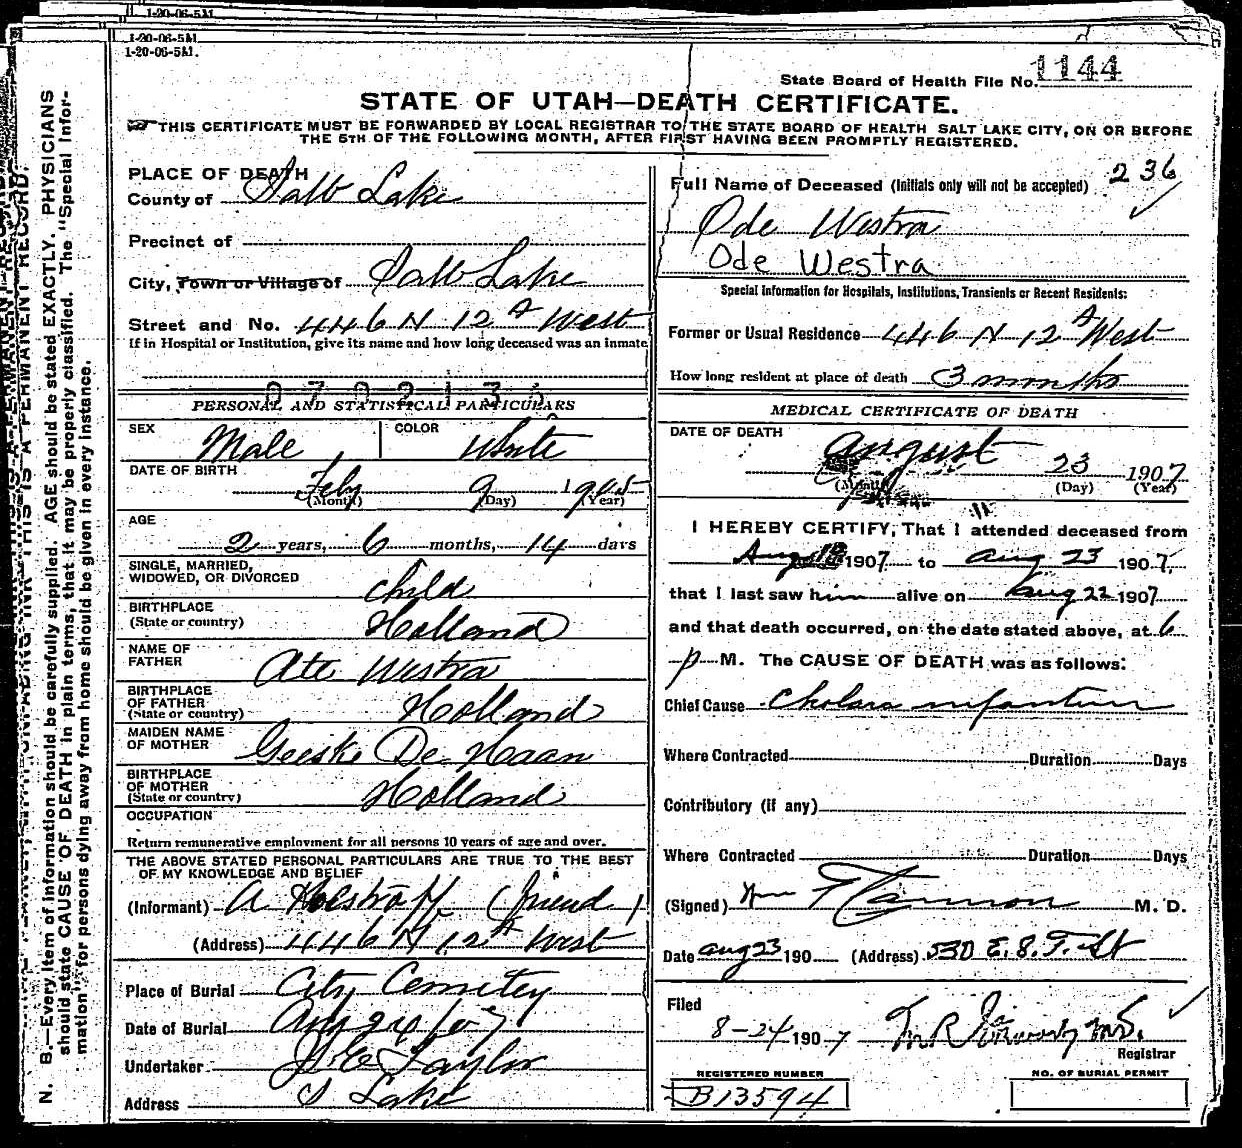 1-20-06-5M.
1-20-06-5M.
1-20-06-5M.
State Board of Health File No. 1144
STATE OF UTAH—DEATH CERTIFICATE.
THIS CERTIFICATE MUST BE FORWARDED BY LOCAL REGISTRAR TO THE STATE BOARD OF HEALTH SALT LAKE CITY, ON OR BEFORE
THE 5TH OF THE FOLLOWING MONTH, AFTER FIRST HAVING BEEN PROMPTLY REGISTERED.
PLACE OF DEATH
County of Salt Lake
Precinct of
City, Town or Village of Salt Lake
Street and No. 446 N 12th West
If in Hospital or Institution, give its name and how long deceased was an inmate
0702135
PERSONAL AND STATISTICAL PARTICULARS
SEX Male COLOR White
DATE OF BIRTH Feby 9 1905
(Month) (Day) (Year)
AGE
2 years, 6 months, 14 days
SINGLE, MARRIED,
WIDOWED, OR DIVORCED child
BIRTHPLACE
(State or country) Holland
NAME OF
FATHER Ate Westra
BIRTHPLACE
OF FATHER
(State or country) Holland
MAIDEN NAME
OF MOTHER Geeske De Haan
BIRTHPLACE
OF MOTHER
(State or country) Holland
OCCUPATION
Return remunerative employment for all persons 10 years of age and over.
THE ABOVE STATED PERSONAL PARTICULARS ARE TRUE TO THE BEST
OF MY KNOWLEDGE AND BELIEF
(Informant) A (friend)
(Address) 446 N 12th West
Place of Burial City Cemetey
Date of Burial Aug 24/07
Undertaker Taylor
Address S Lake
236
Full Name of Deceased (Initials only will not be accepted)
Ode Westra
Ode Westra
Special Information for Hospitals, Institutions, Transients or Recent Residents:
Former or Usual Residence 446 N 12th West
How long resident at place of death 3 months
MEDICAL CERTIFICATE OF DEATH
DATE OF DEATH
August 23 1907
(Month) (Day) (Year)
I HEREBY CERTIFY, That I attended deceased from
Aug 18 1907 to Aug 23 1907,
that I last saw him alive on Aug 22 1907
and that death occurred, on the date stated above, at 6
p M. The CAUSE OF DEATH was as follows:
Chief Cause Cholara infantum
Where Contracted Duration Days
Contributory (if any)
Where Contracted Duration Days
(Signed) M. D.
Date Aug 23 190 (Address) 530 E. 8.
Filed
8-24 1907 M.D.
Registrar
REGISTERED NUMBER
B13594
NO. OF BURIAL PERMIT
N. B.—Every item of information should be carefully supplied. AGE should be stated EXACTLY. PHYSICIANS
should state CAUSE OF DEATH in plain terms, that it may be properly classified. The "Special Infor-
mation" for persons dying away from home should be given in every instance.